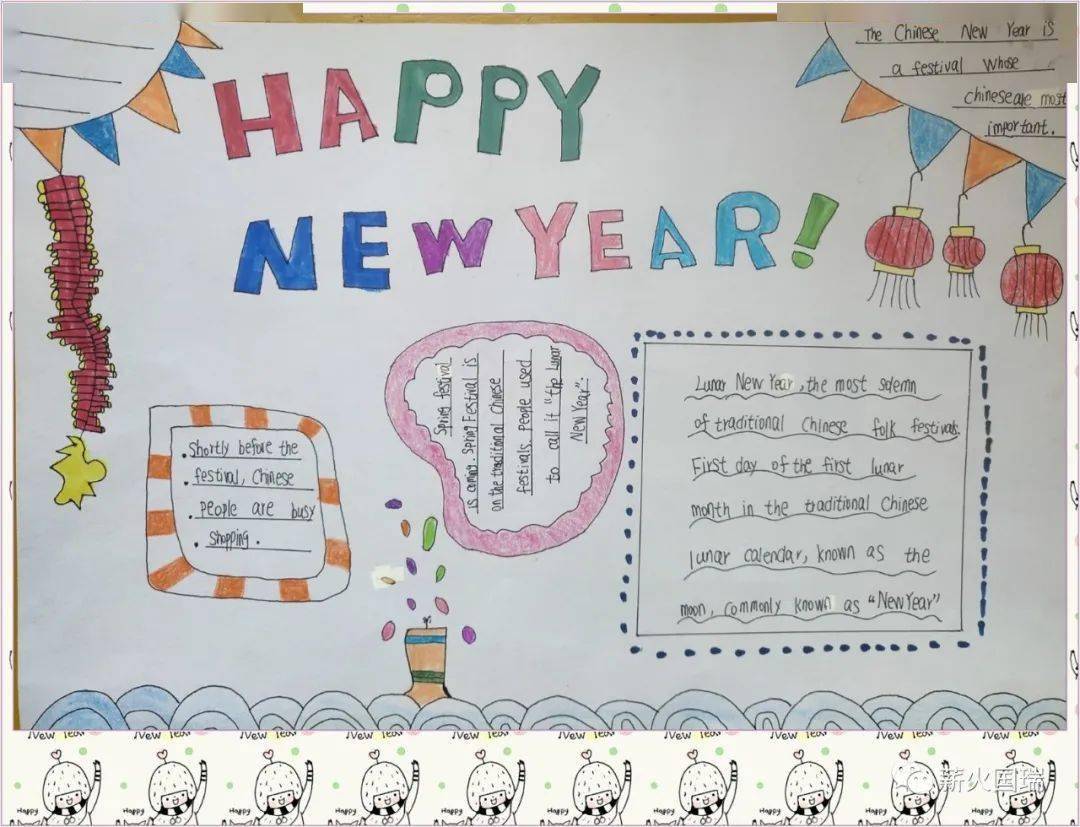 The Chinese New Year is
a festival whose
chinese are most
important.
HAPPY
NEW YEAR!
Spring festival
is coming. Spring Festival is
on the traditional Chinese
festivals. People used
to call it "the Lunar
New Year".
Lunar New Year, the most solemn
of traditional Chinese folk festivals.
First day of the first lunar
month in the traditional Chinese
lunar calendar, known as the
moon, commonly known as "New Year"
• Shortly before the
• festival, Chinese
• people are busy
• shopping.
New Year New Year New Year New Year New Year New Year New Year New Year New Year
Happy Happy Happy Happy Happy Happy Happy Happy Happy
薪火国瑞